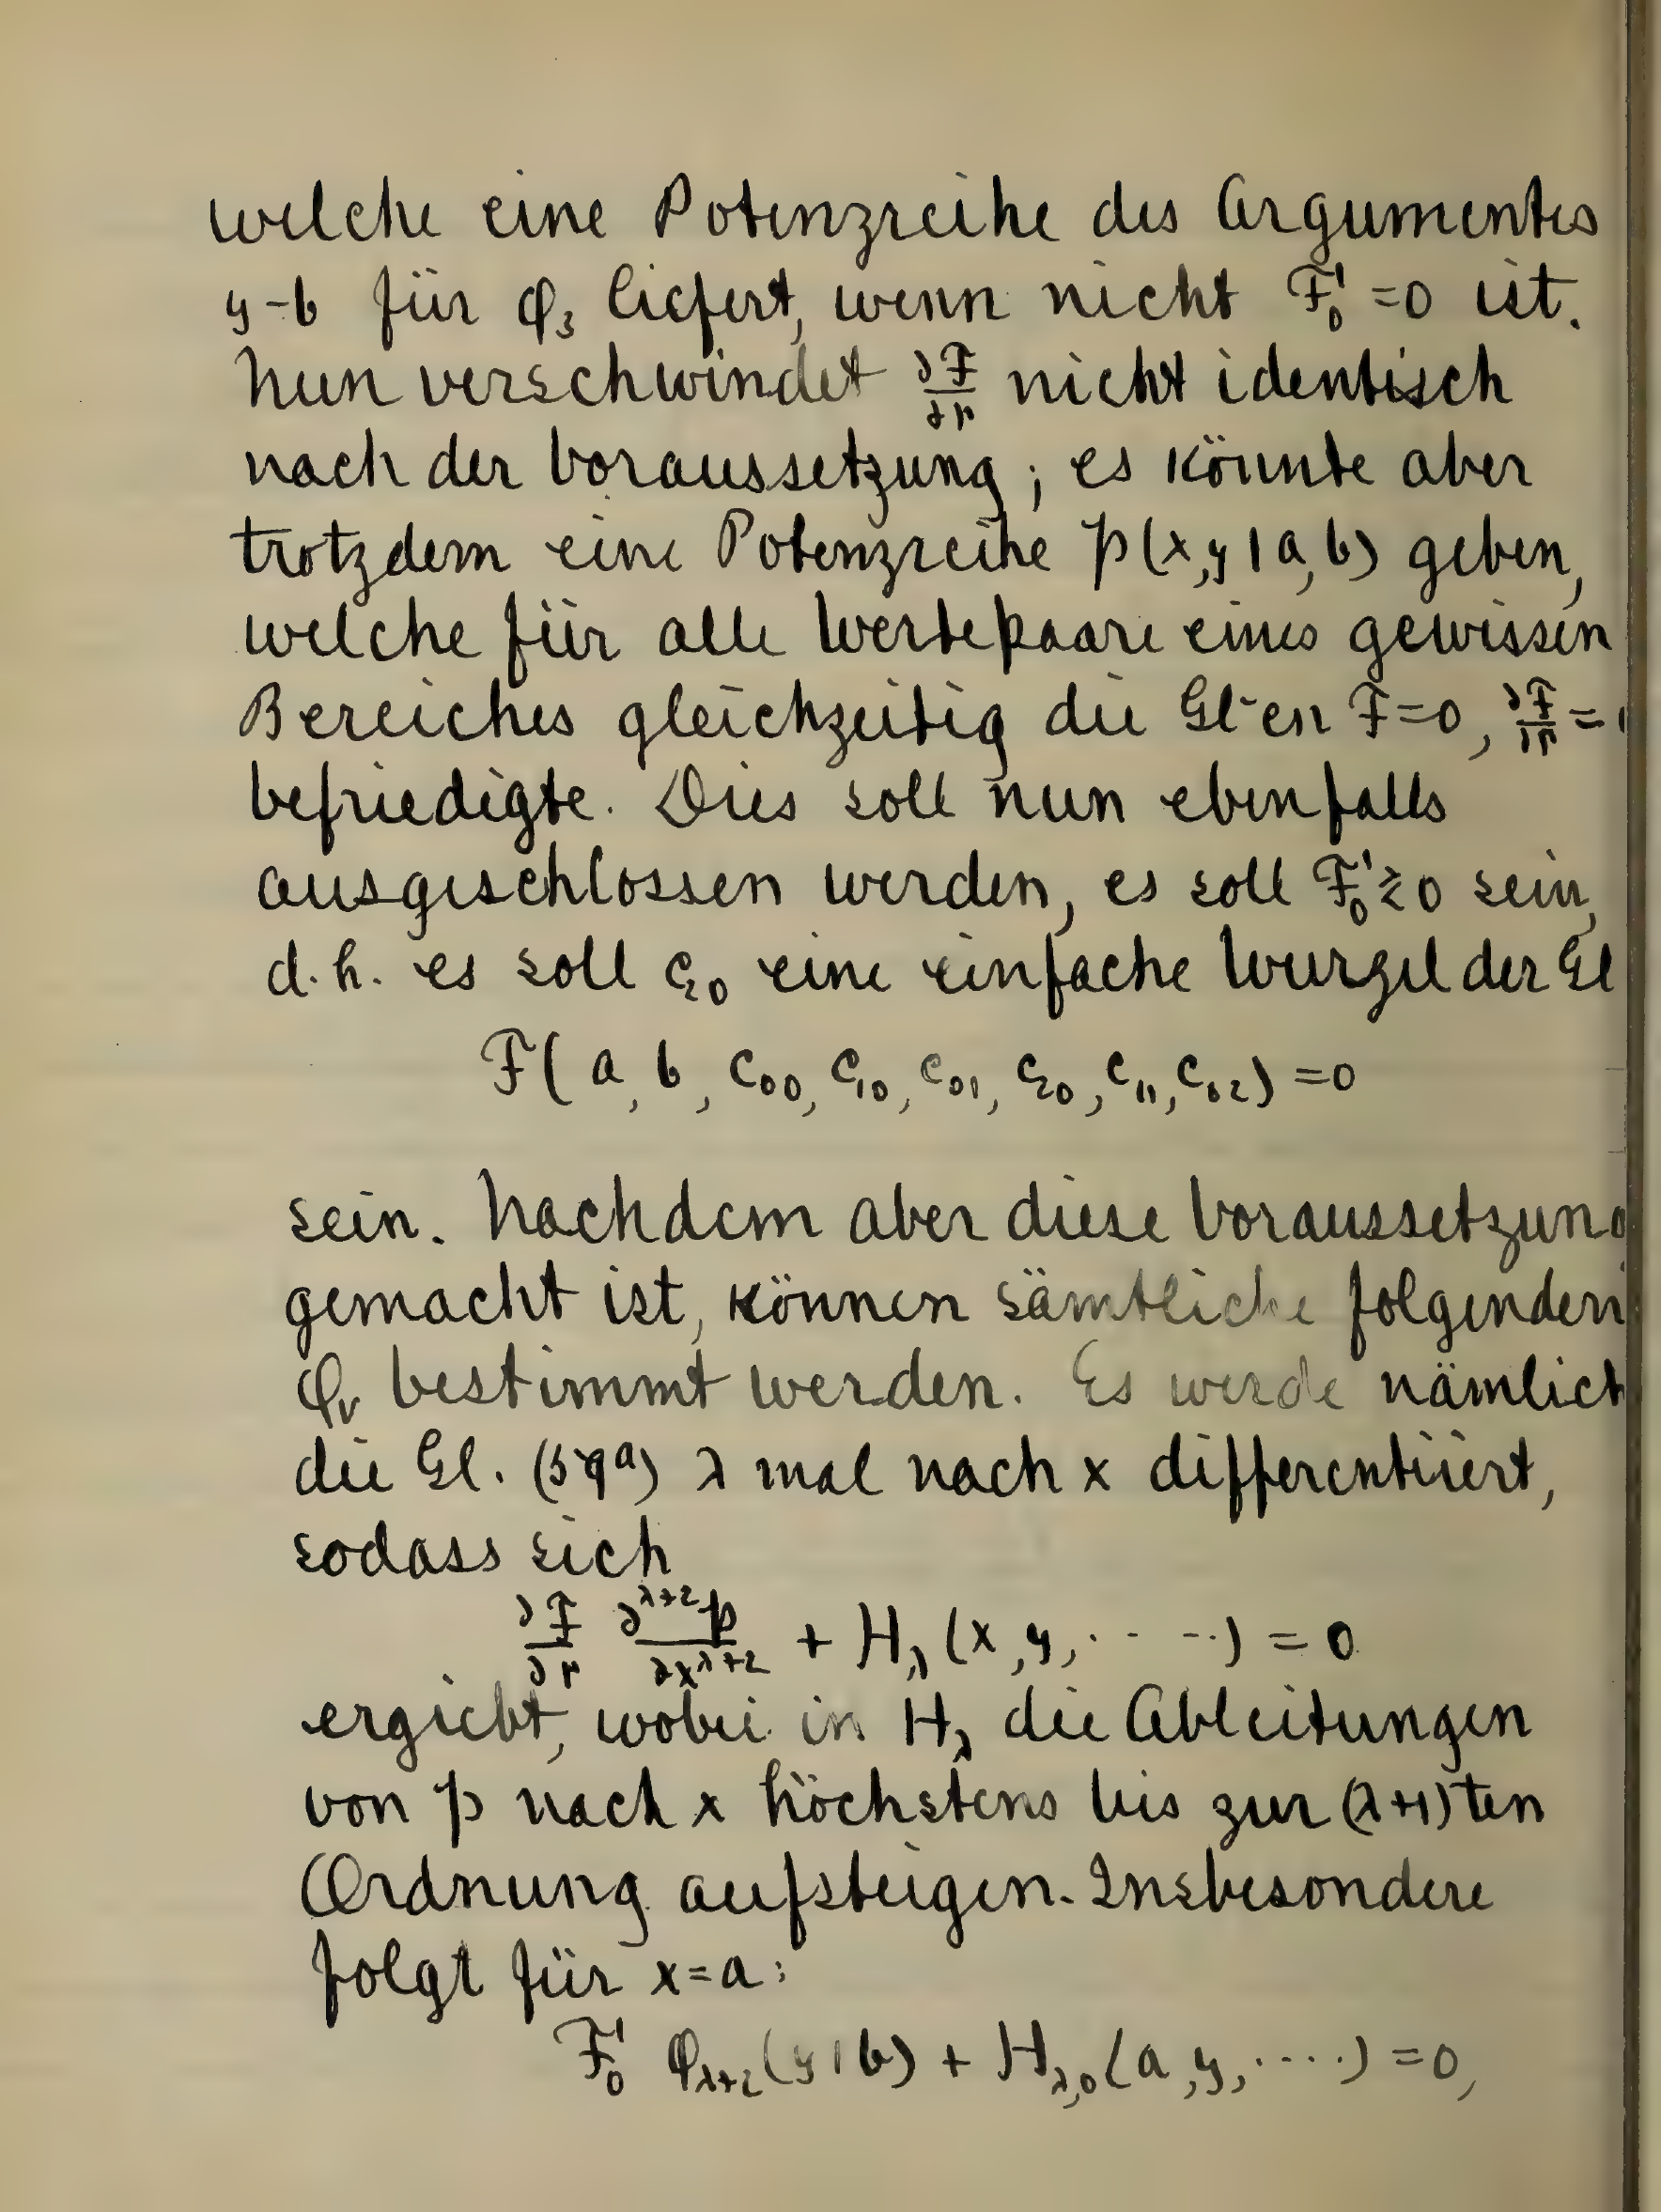 welche eine Potenzreihe des Argumentes
y-b für φ₃ liefert, wenn nicht F₀' = 0 ist.
Nun verschwindet ∂F/∂r nicht identisch
nach der Voraussetzung; es könnte aber
trotzdem eine Potenzreihe p(x,y|a,b) geben,
welche für alle Wertepaare eines gewissen
Bereiches gleichzeitig die Gl-en F=0, ∂F/∂r =
befriedigte. Dies soll nun ebenfalls
ausgeschlossen werden, es soll F₀' ≷ 0 sein,
d.h. es soll c₂₀ eine einfache Wurzel der Gl
F(a, b, c₀₀, c₁₀, c₀₁, c₂₀, c₁₁, c₀₂) = 0
sein. Nachdem aber diese Voraussetzung
gemacht ist, können sämtliche folgenden
φᵥ bestimmt werden. Es werde nämlich
die Gl. (59a) λ mal nach x differentiiert,
sodass sich
∂F/∂r ∂^{λ+2}p/∂x^{λ+2} + H_λ (x,y,.....) = 0
ergiebt, wobei in H_λ die Ableitungen
von p nach x höchstens bis zur (λ+1)ten
Ordnung aufsteigen. Insbesondere
folgt für x=a:
F₀' φ_{λ+2}(y|b) + H_{λ,0}(a,y,.....) = 0,